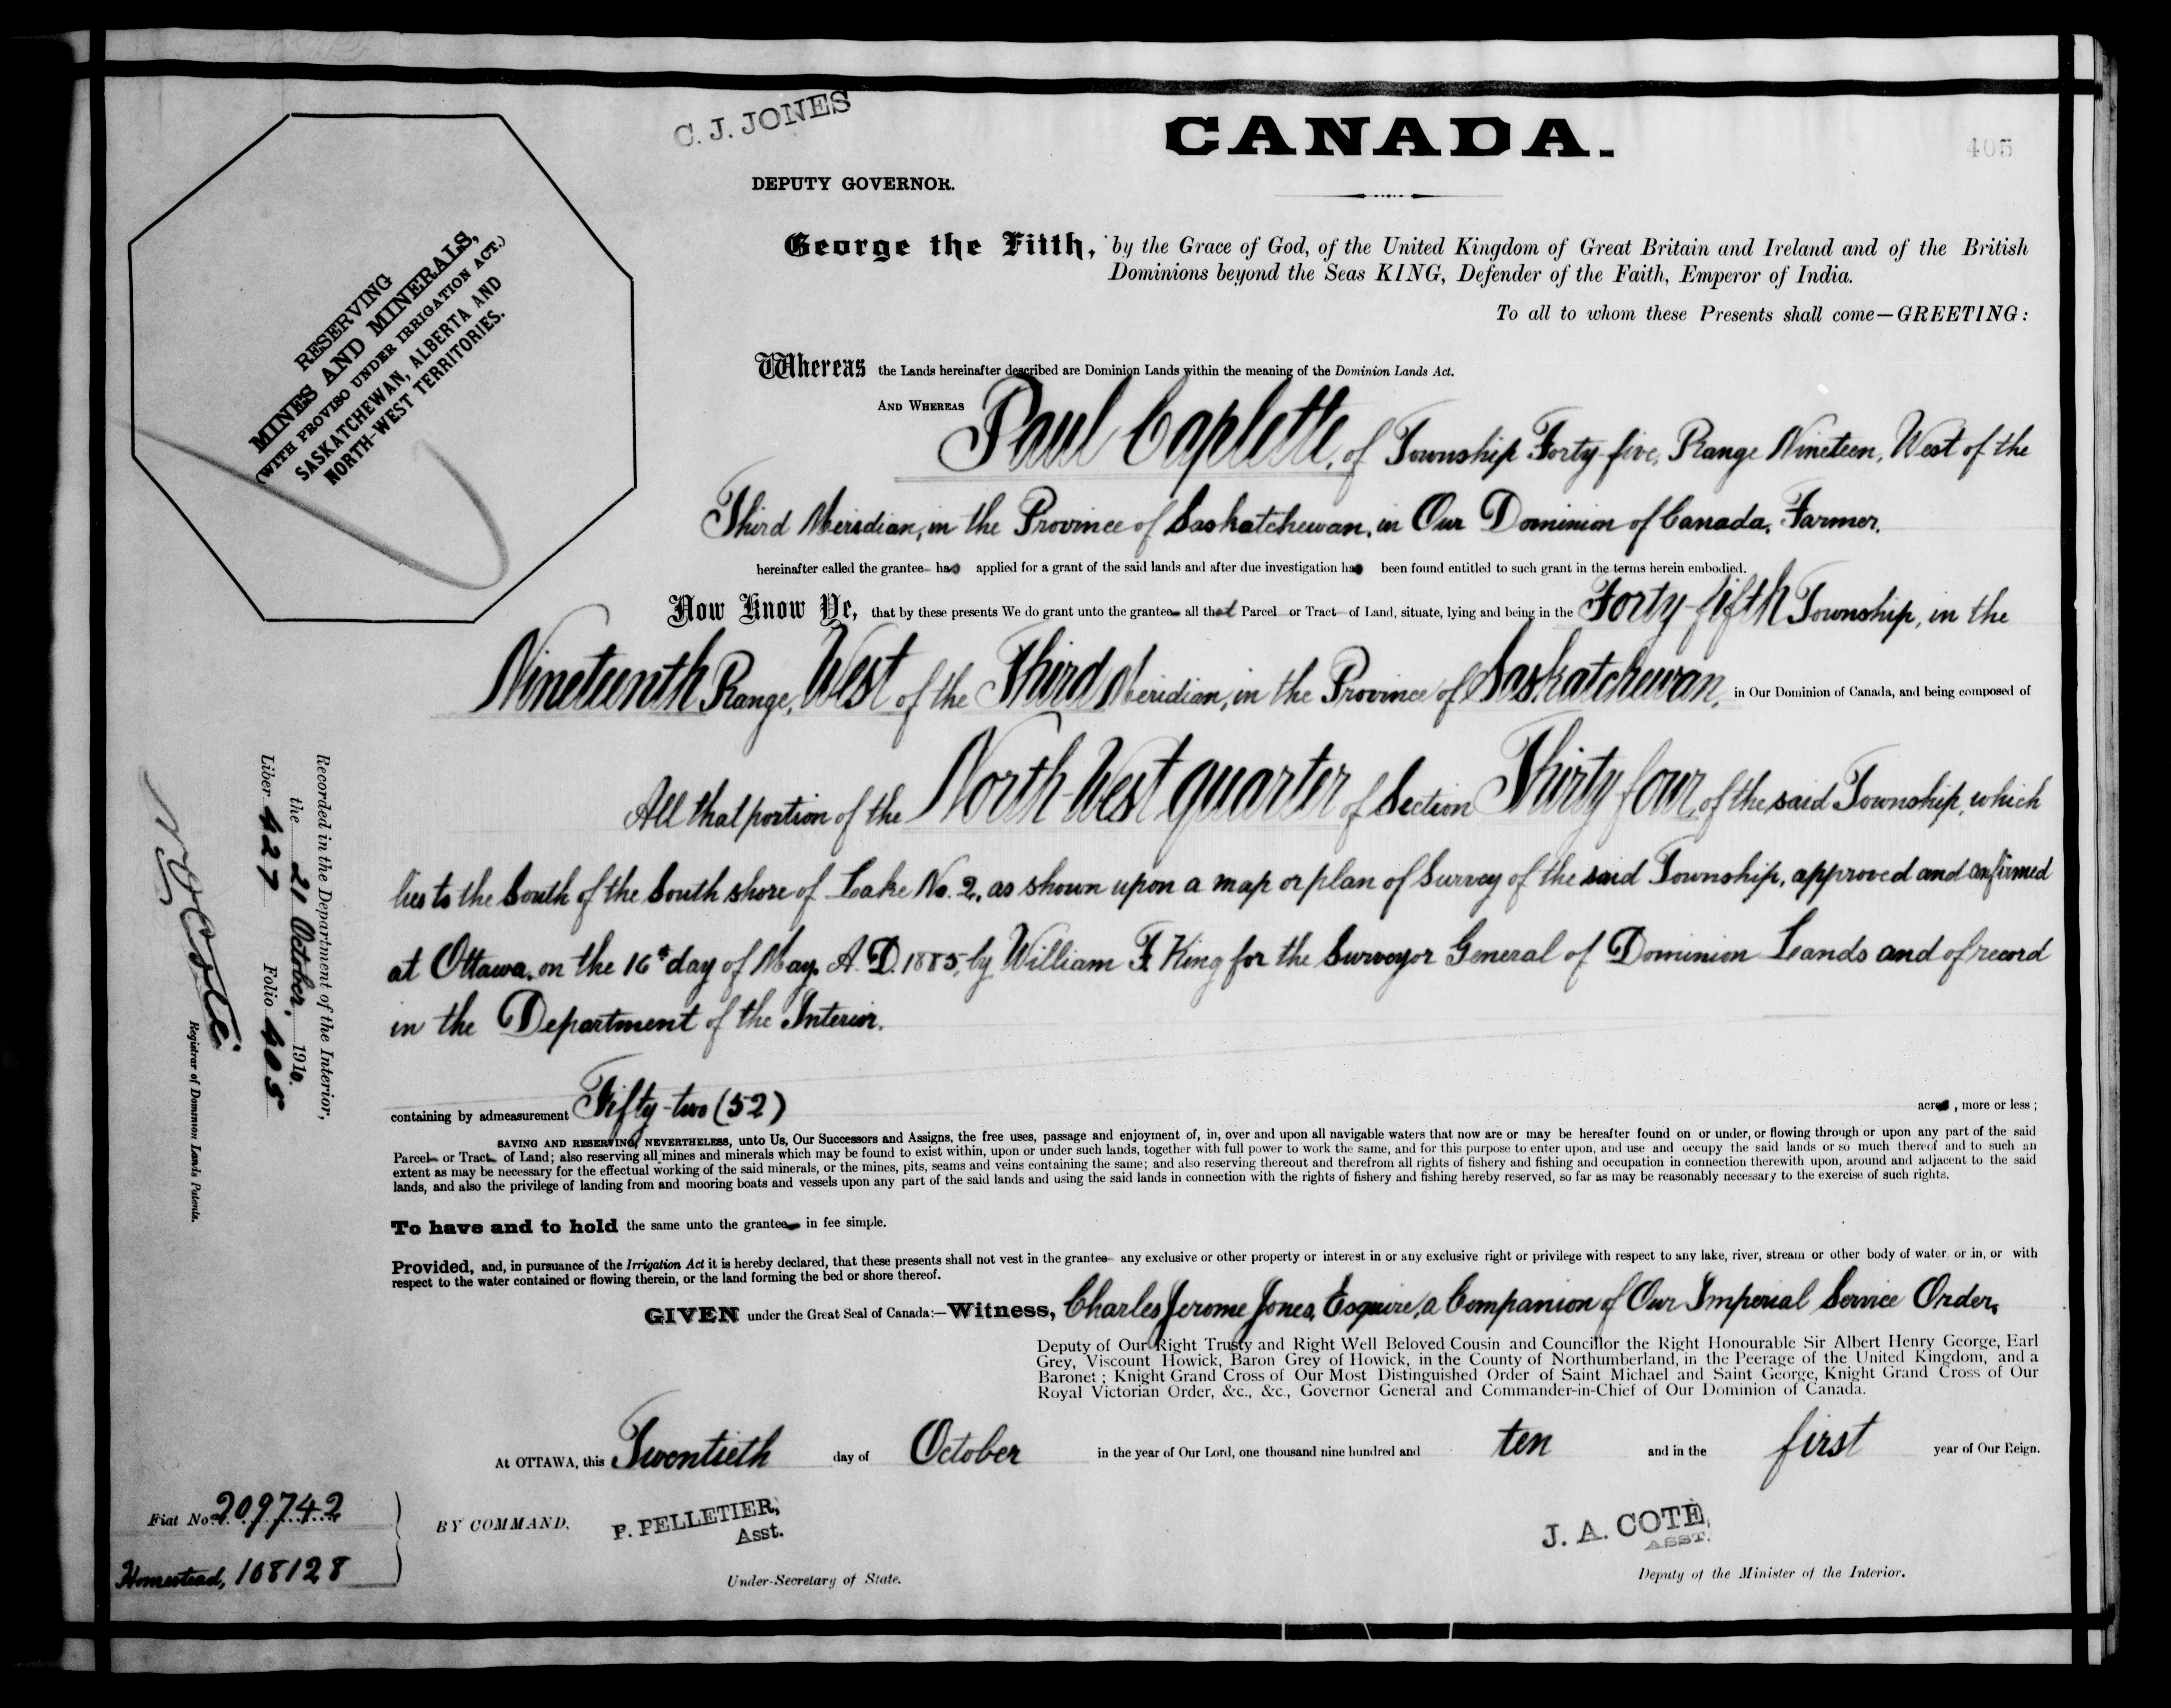 C. J. JONES
CANADA.
405
DEPUTY GOVERNOR.
RESERVING
MINES AND MINERALS,
(WITH PROVISO UNDER IRRIGATION ACT.)
SASKATCHEWAN, ALBERTA AND
NORTH-WEST TERRITORIES.
George the Fifth, by the Grace of God, of the United Kingdom of Great Britain and Ireland and of the British
Dominions beyond the Seas KING, Defender of the Faith, Emperor of India.
To all to whom these Presents shall come—GREETING:
Whereas the Lands hereinafter described are Dominion Lands within the meaning of the Dominion Lands Act.
AND WHEREAS Paul Caplette, of Township Forty-five, Range Nineteen, West of the
Third Meridian, in the Province of Saskatchewan, in Our Dominion of Canada, Farmer,
hereinafter called the grantee has applied for a grant of the said lands and after due investigation has been found entitled to such grant in the terms herein embodied.
Now Know Ye, that by these presents We do grant unto the grantee all that Parcel or Tract of Land, situate, lying and being in the Forty-fifth Township, in the
Nineteenth Range, West of the Third Meridian, in the Province of Saskatchewan, in Our Dominion of Canada, and being composed of
All that portion of the North-West quarter of Section Thirty four, of the said Township, which
lies to the South of the South shore of Lake No. 2, as shown upon a map or plan of Survey of the said Township, approved and confirmed
at Ottawa, on the 16th day of May, A. D. 1885, by William F. King for the Surveyor General of Dominion Lands and of record
in the Department of the Interior.
containing by admeasurement Fifty-two (52) acres, more or less;
SAVING AND RESERVING, NEVERTHELESS, unto Us, Our Successors and Assigns, the free uses, passage and enjoyment of, in, over and upon all navigable waters that now are or may be hereafter found on or under, or flowing through or upon any part of the said
Parcel or Tract of Land; also reserving all mines and minerals which may be found to exist within, upon or under such lands, together with full power to work the same, and for this purpose to enter upon, and use and occupy the said lands or so much thereof and to such an
extent as may be necessary for the effectual working of the said minerals, or the mines, pits, seams and veins containing the same; and also reserving thereout and therefrom all rights of fishery and fishing and occupation in connection therewith upon, around and adjacent to the said
lands, and also the privilege of landing from and mooring boats and vessels upon any part of the said lands and using the said lands in connection with the rights of fishery and fishing hereby reserved, so far as may be reasonably necessary to the exercise of such rights.
To have and to hold the same unto the grantee in fee simple.
Provided, and, in pursuance of the Irrigation Act it is hereby declared, that these presents shall not vest in the grantee any exclusive or other property or interest in or any exclusive right or privilege with respect to any lake, river, stream or other body of water or in, or with
respect to the water contained or flowing therein, or the land forming the bed or shore thereof.
GIVEN under the Great Seal of Canada:—Witness, Charles Jerome Jones, Esquire, a Companion of Our Imperial Service Order,
Deputy of Our Right Trusty and Right Well Beloved Cousin and Councillor the Right Honourable Sir Albert Henry George, Earl
Grey, Viscount Howick, Baron Grey of Howick, in the County of Northumberland, in the Peerage of the United Kingdom, and a
Baronet; Knight Grand Cross of Our Most Distinguished Order of Saint Michael and Saint George, Knight Grand Cross of Our
Royal Victorian Order, &c., &c., Governor General and Commander-in-Chief of Our Dominion of Canada.
At OTTAWA, this Twentieth day of October in the year of Our Lord, one thousand nine hundred and ten and in the first year of Our Reign.
BY COMMAND,
P. PELLETIER,
Asst.
Under-Secretary of State.
J. A. COTE,
ASST.
Deputy of the Minister of the Interior.
Fiat No. 209742
Homestead, 108128
Recorded in the Department of the Interior,
the 21 October, 1910.
Liber 427 Folio 405
N. O. Coté
Registrar of Dominion Lands Patents.